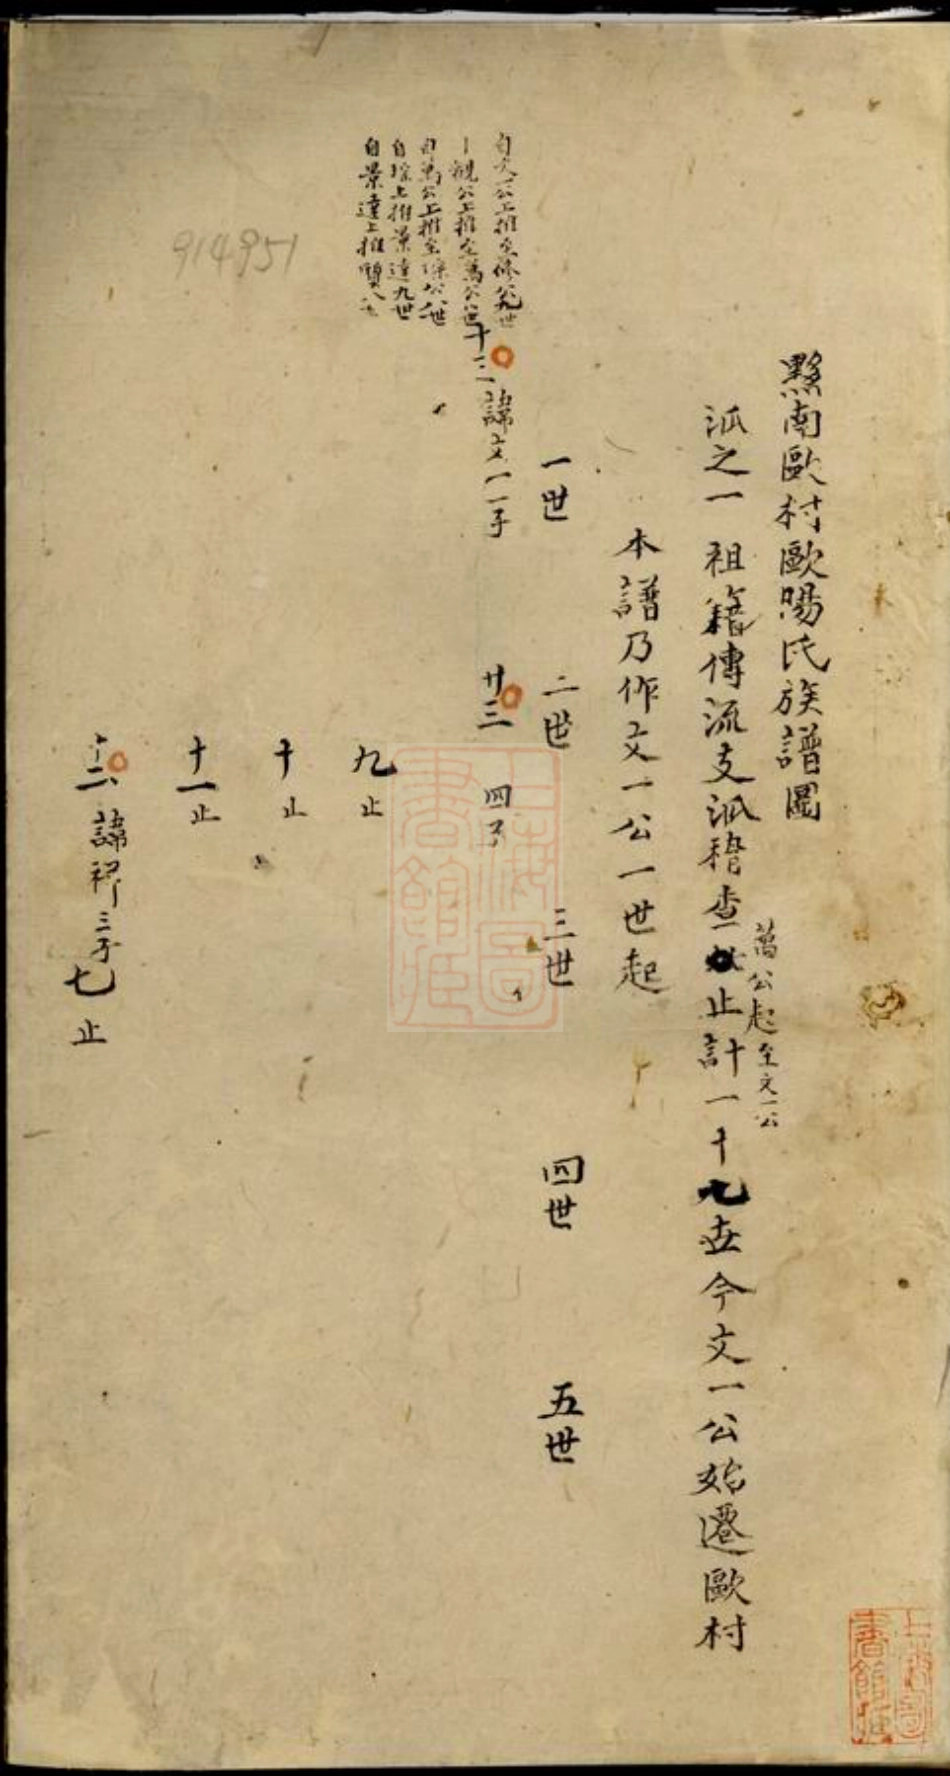 黟南歐村歐陽氏族譜圖
派之一祖籍傳流支派稽查止計一十七世今文一公始遷歐村
萬公起至文一公
本譜乃作文一公一世起
一世 二世 三世 四世 五世
自文一公上推至修公九世
觀公上推至萬公八世
自萬公上推至琮公八世
自琮上推景達九世
自景達上推質八世
十三 諱文一 一子
廿三 四子
九 止
十 止
十一 止
十二 諱 三子
七 止
914951
上海圖書館藏
上海圖書館藏